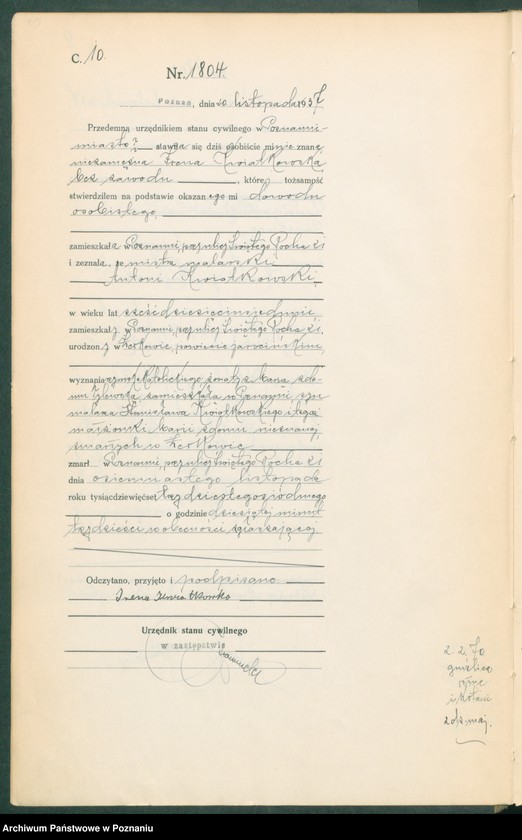 C. 10.
Nr. 1804.
Poznań, dnia 20 listopada 1937
Przedemną urzędnikiem stanu cywilnego w Poznaniu-
miasto stawiła się dziś osobiście mi nie znana
niezamężna Irena Kwiatkowska,
bez zawodu, której tożsamość
stwierdziłem na podstawie okazanego mi dowodu
osobistego,
zamieszkała w Poznaniu, przy ulicy Świętego Rocha
i zeznała, że mistrz malarski
Antoni Kwiatkowski,
w wieku lat sześćdziesięciu
zamieszkały w Poznaniu, przy ulicy Świętego Rocha
urodzony w Żerkowie, powiecie jarocińskim,
wyznania rzymsko katolickiego, żonaty z
zamieszkałą w Poznaniu, syn
malarza Stanisława Kwiatkowskiego i tegoż
małżonki Marii z domu nieznanej,
zmarłych w Żerkowie
zmarł w Poznaniu, przy ulicy Świętego Rocha
dnia osiemnastego listopada
roku tysiącdziewięćset trzydziestego siódmego
o godzinie dziesiątej minut
trzydzieści w obecności zgłaszającej.
Odczytano, przyjęto i podpisano
Irena Kwiatkowska
Urzędnik stanu cywilnego
w zastępstwie
2. 2. 70
gruźlica
płuc
i krtani
Archiwum Państwowe w Poznaniu